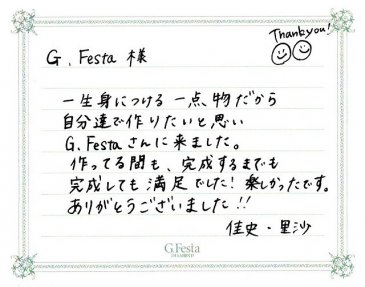 Thankyou!
G. Festa 様
一生身につける一点物だから
自分達で作りたいと思い
G. Festaさんに来ました。
作ってる間も、完成するまでも
完成しても満足でした!楽しかったです。
ありがとうございました!!
佳史・里沙
G.Festa
DIAMOND